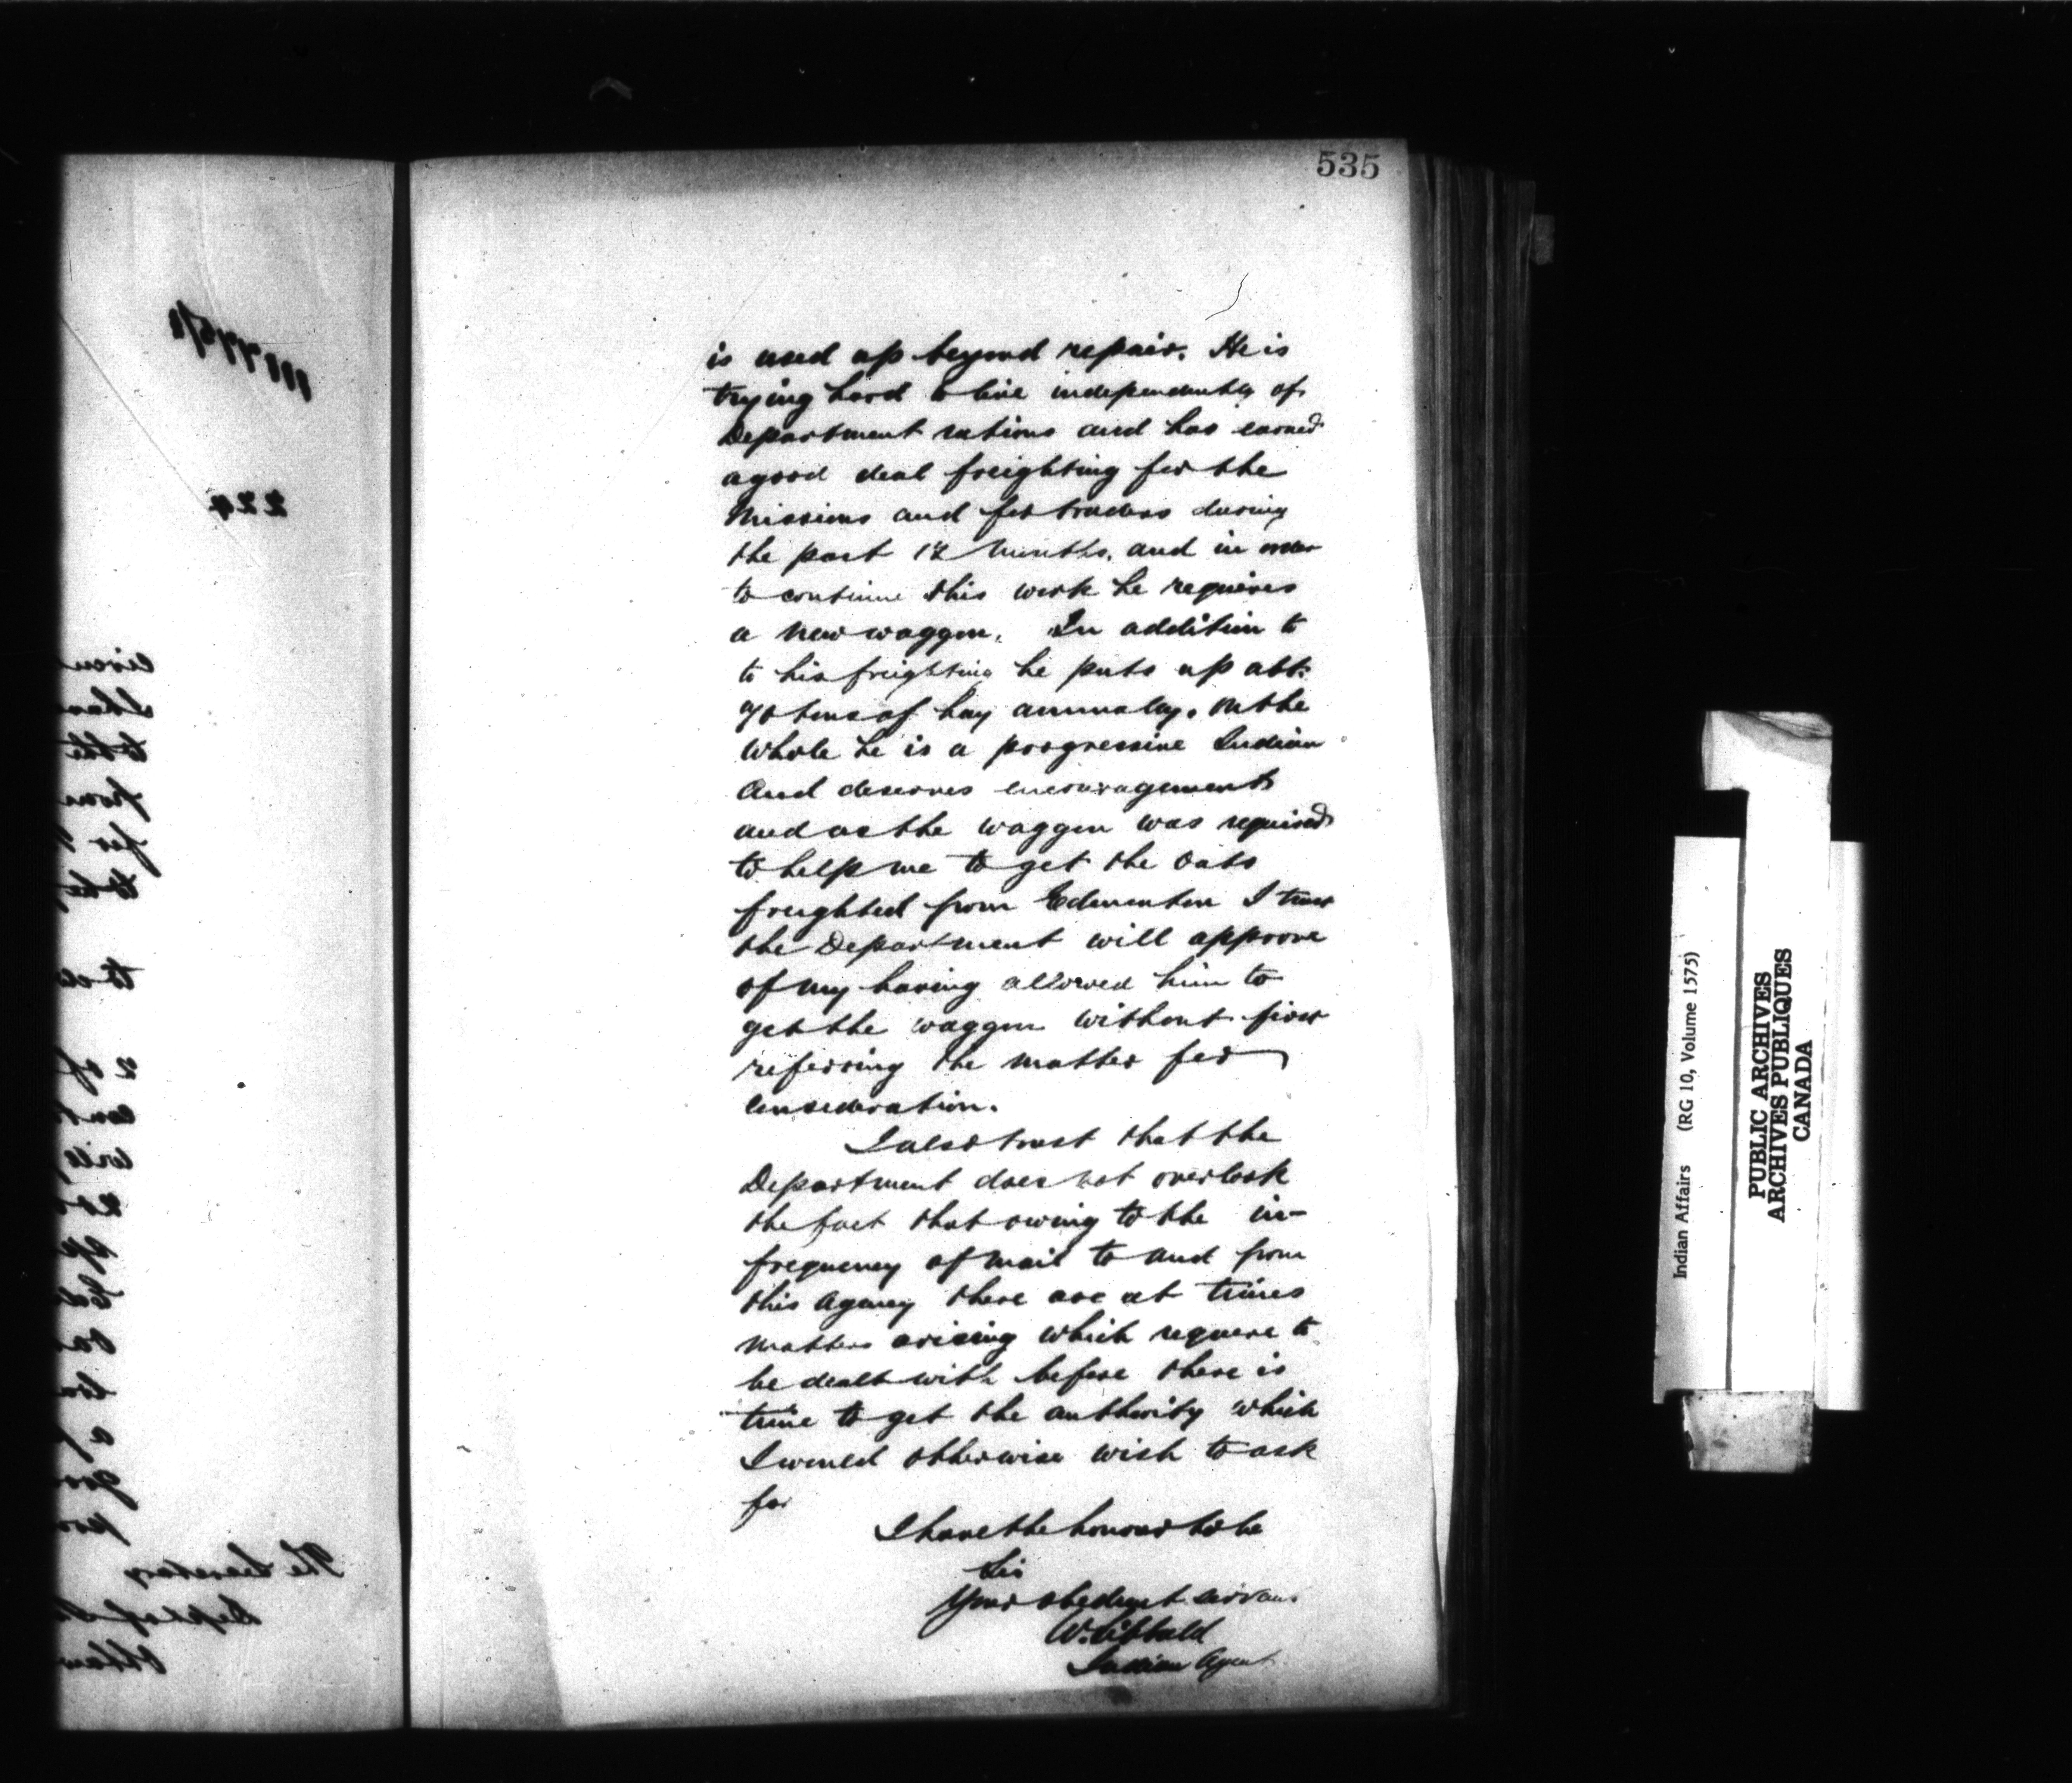 535
is used up beyond repair. He is
trying hard to live independently of
Department rations and has earned
a good deal freighting for the
Missions and for traders during
the past 12 months. and in order
to continue this work he requires
a new waggon. In addition to
to his freighting he puts up abt.
70 tons of hay annualy. On the
whole he is a progressive Indian
and deserves encouragement
and as the waggon was required
to help me to get the oats
freighted from Edmonton I trust
the Department will approve
of my having allowed him to
get the waggon without first
referring the matter for
consideration.
I also trust that the
Department does not overlook
the fact that owing to the in-
frequency of mail to and from
this Agency there are at times
matters arising which require to
be dealt with before there is
time to get the authority which
I would otherwise wish to ask
for
I have the honour to be
Sir
Your obedient servant
W. Sibbald
Indian Agent
224
The Secretary
Dept of
Indian Affairs (RG 10, Volume 1575)
PUBLIC ARCHIVES
ARCHIVES PUBLIQUES
CANADA